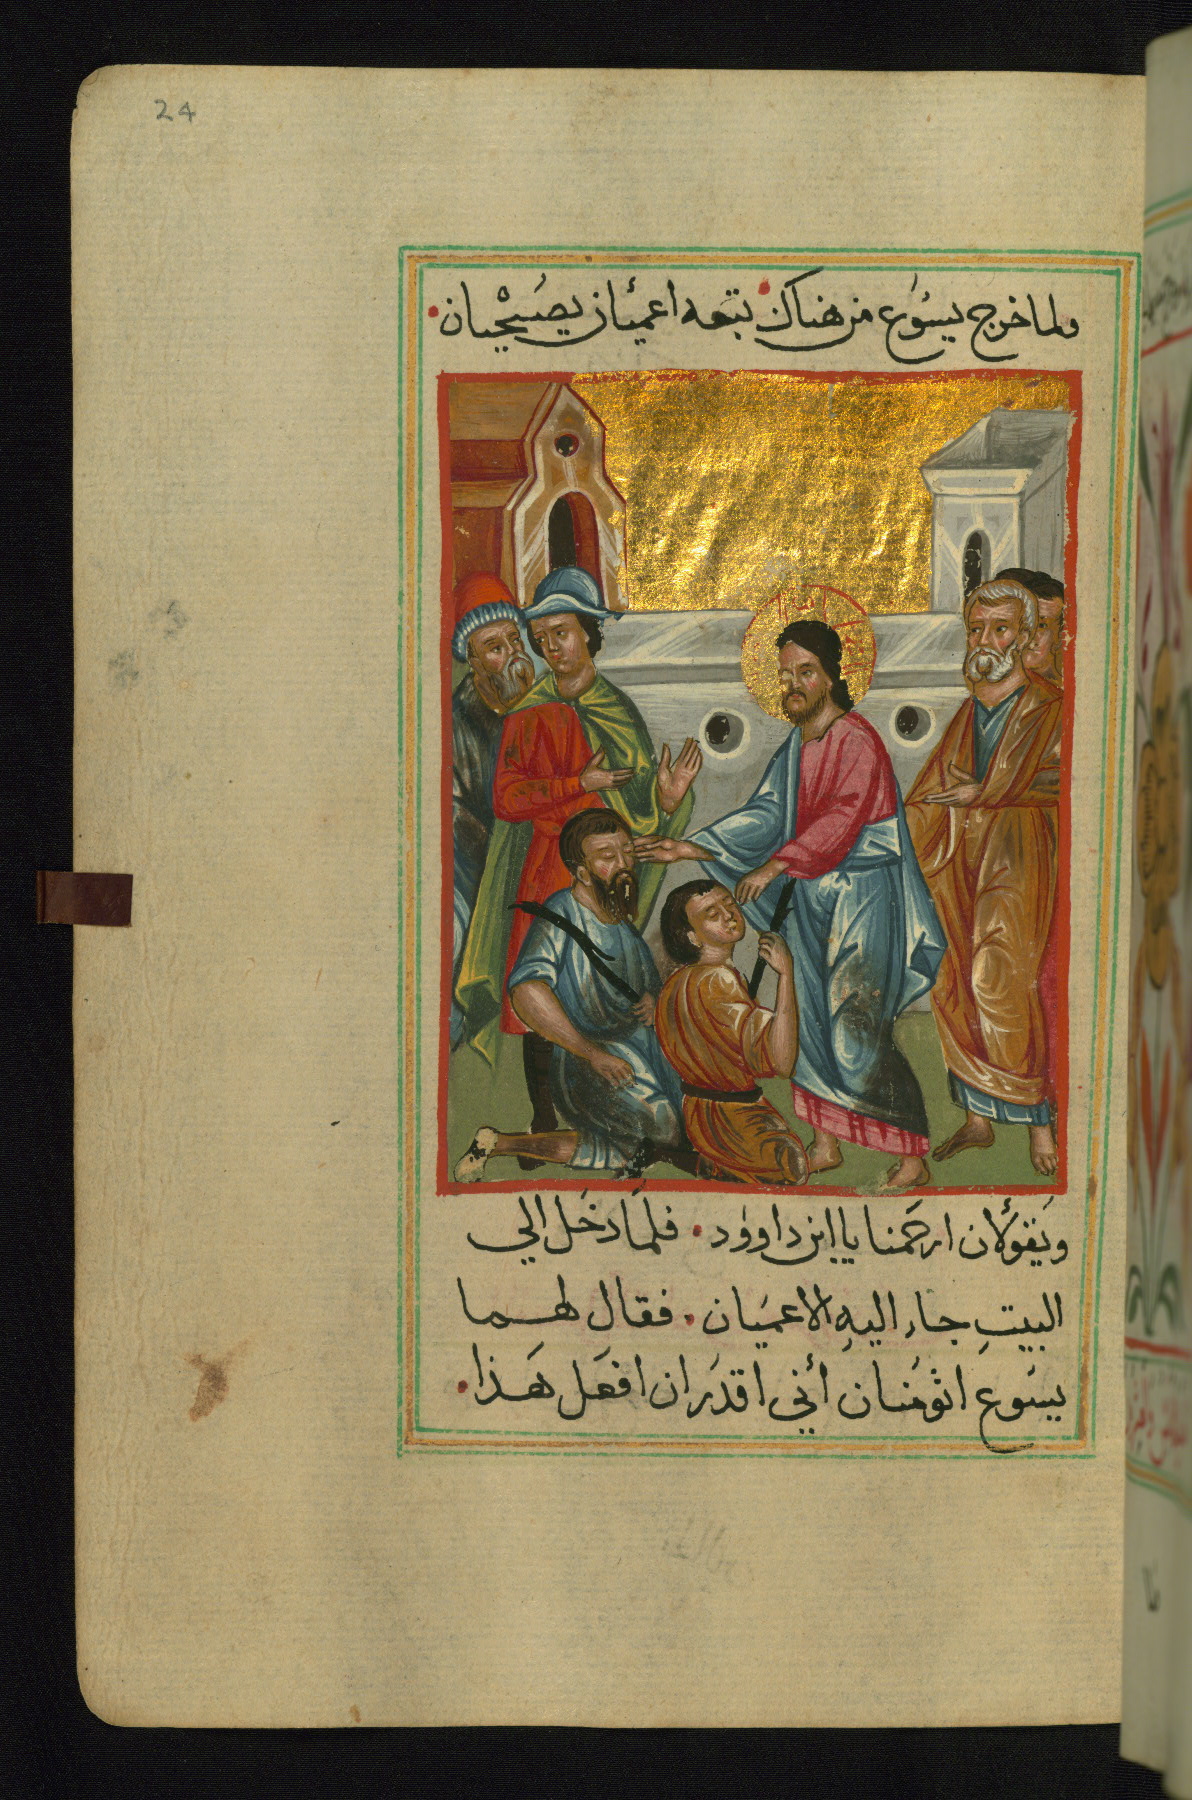 24
ولما خرج يسوع من هناك تبعه اعميان يصيحيان
ويقولان ارحمنا يا ابن داوود. فلما دخل الي
البيت جاء اليه الاعميان. فقال لهما
يسوع اتومنان أني اقدر ان افعل هذا.